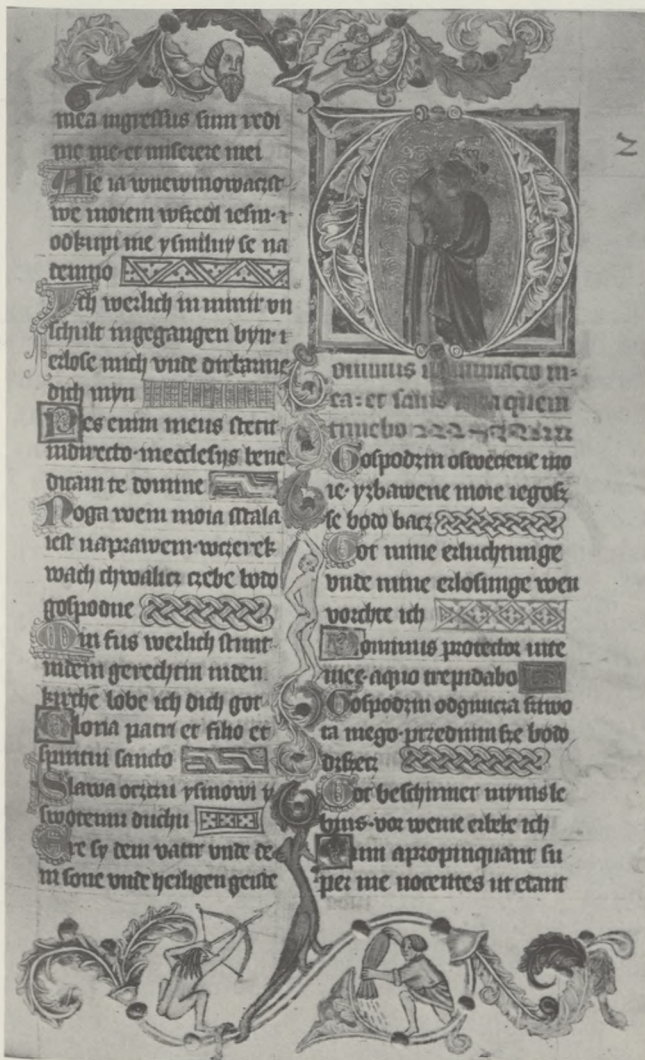 mea ingressus sum redi
me me·et miserere mei
Ale ia wnewinowaczst
we moiem wszedl iesm· i
odkupi me ysmiluy se na
demno
Ich werlich in minir vn
schult ingegangen byn· i
erlose mich vnde dirbarme
dich myn
Pes enim meus stetit
indirecto·inecclesijs bene
dicam te domine
Noga wem moia stala
iest naprawem·wczerek
wach chwalicz czebe bodo
gospodne
Min fus werlich stunt
indem gerechtin inden
kirche lobe ich dich got
Gloria patri et filio et
spiritui sancto
Slawa oczczu ysinowi y
swotemu duchu
Ere sy dem vatir vnde de
m sone vnde heiligen geiste
Dominus illuminacio m=
ea: et salus mea quem
timebo
Gospodzin oswecene mo
ie·yzbawene moie iegosz
se bodo bacz
Got mine erluchtunge
vnde mine erlosunge wen
vorchte ich
Dominus protector uite
mee·aquo trepidabo
Gospodzin sziwo
ta mego·przednimsze bodo
drszecz
Got beschirmer mynisle
bins·vor weme erbebe ich
Dum apropinquant su
per me nocentes ut edant